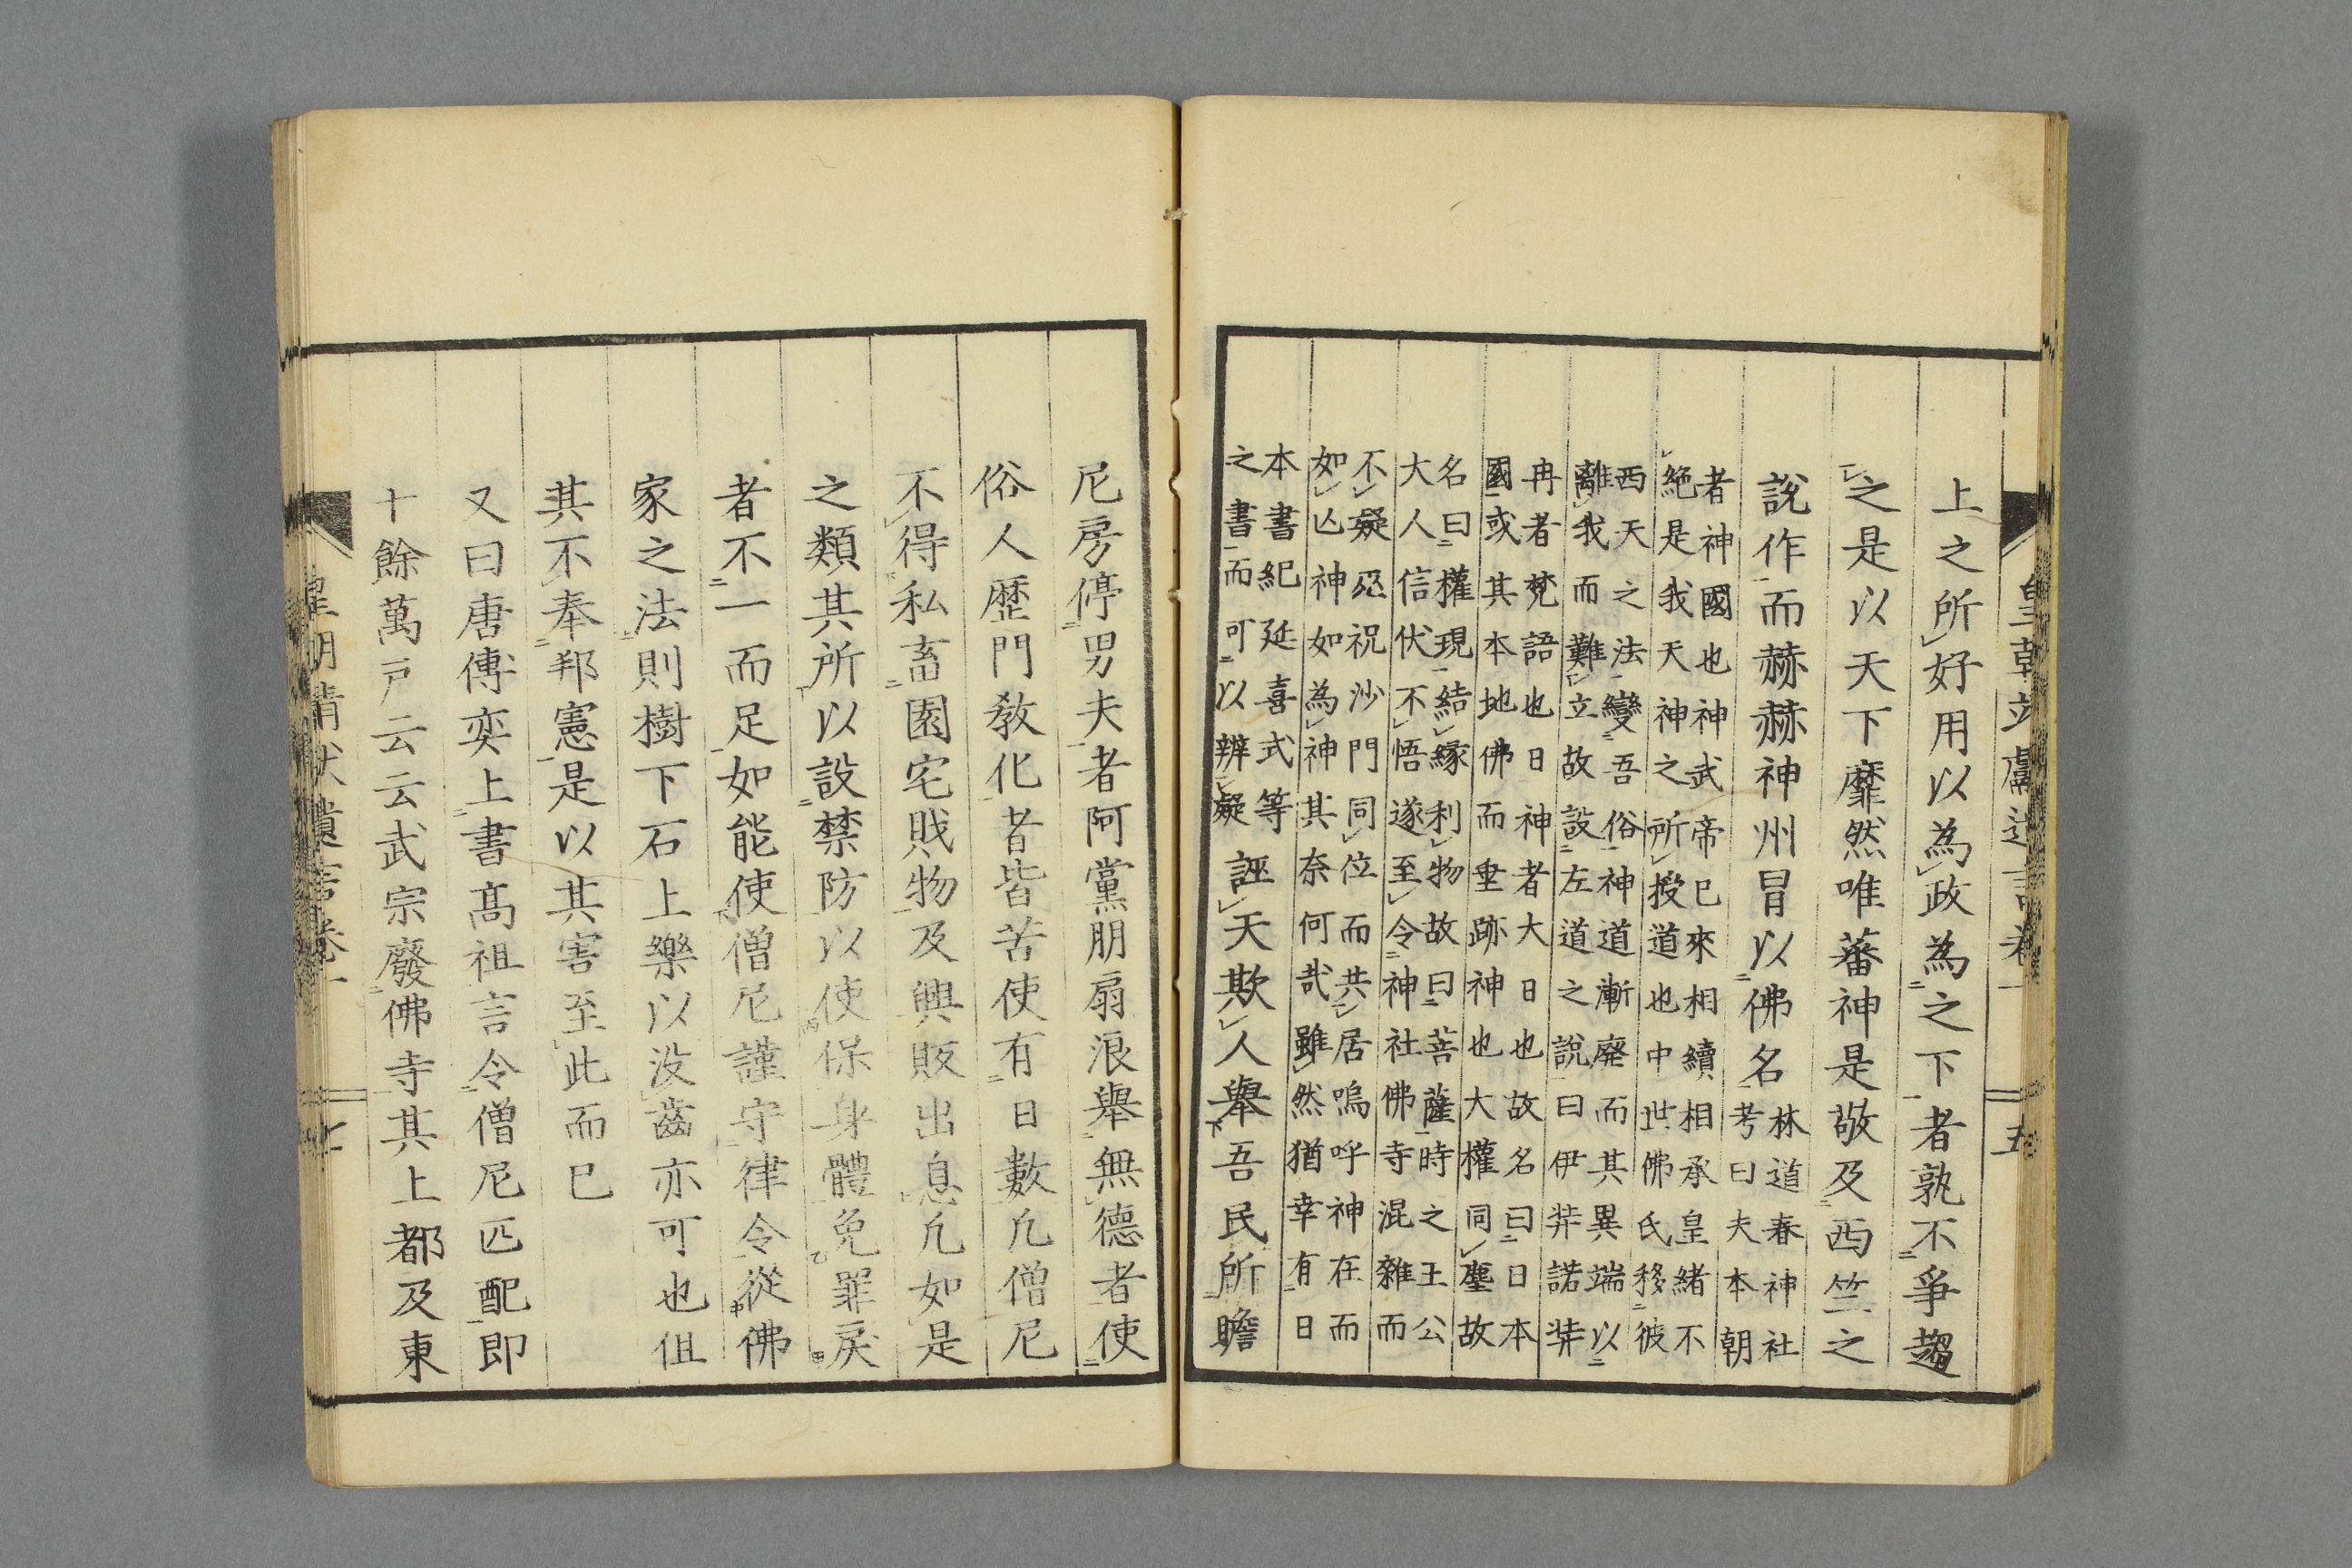 上之所好用以為政為之下者孰不爭趨
之是以天下靡然唯蕃神是敬及西竺之
說作而赫赫神州冒以佛名
林道春神社
考曰夫本朝
者神國也神武帝已來相續相承皇緒不
絕是我天神之所授道也中世佛氏移彼
西天之法變吾俗神道漸廢而其異端以
離我而難立故設左道之說曰伊弉諾弉
冉者梵語也日神者大日也故名曰日本
國或其本地佛而垂跡神也大權同塵故
名曰權現結緣利物故曰菩薩時之王公
大人信伏不悟遂至令神社佛寺混雜而
不疑巫祝沙門同位而共居嗚呼神在而
如亾神如為神其奈何哉雖然猶幸有日
本書紀延喜式等
之書而可以辨疑
誣天欺人舉吾民所瞻
尼房停男夫者阿黨朋扇浪舉無德者使
俗人歷門教化者皆苦使有日數凡僧尼
不得私畜園宅財物及興販出息凡如是
之類其所以設禁防以使保身體免罪戾
者不一而足如能使僧尼謹守律令從佛
家之法則樹下石上樂以沒齒亦可也但
其不奉邦憲是以其害至此而已
又曰唐傅奕上書高祖言令僧尼匹配即
十餘萬戶云云武宗廢佛寺其上都及東